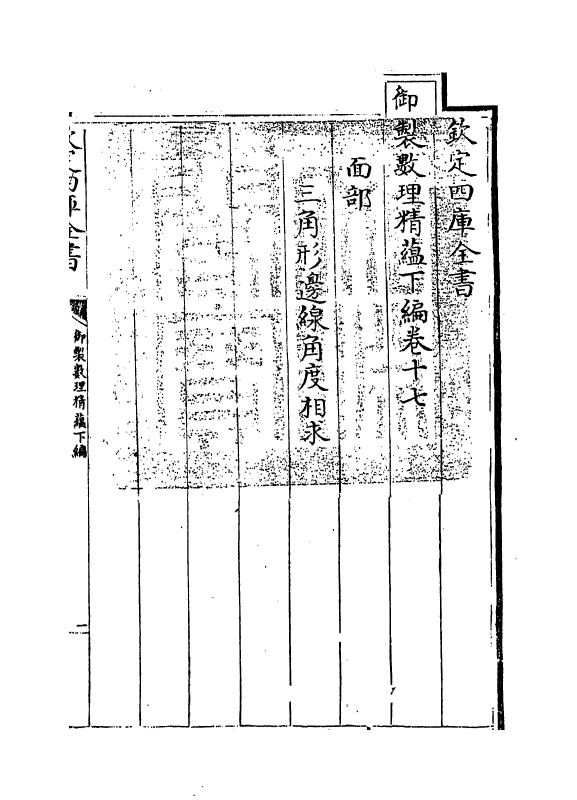 欽定四庫全書
御製數理精藴下編卷十七
面部
三角形邊線角度相求
欽定四庫全書
御製數理精藴下編
二